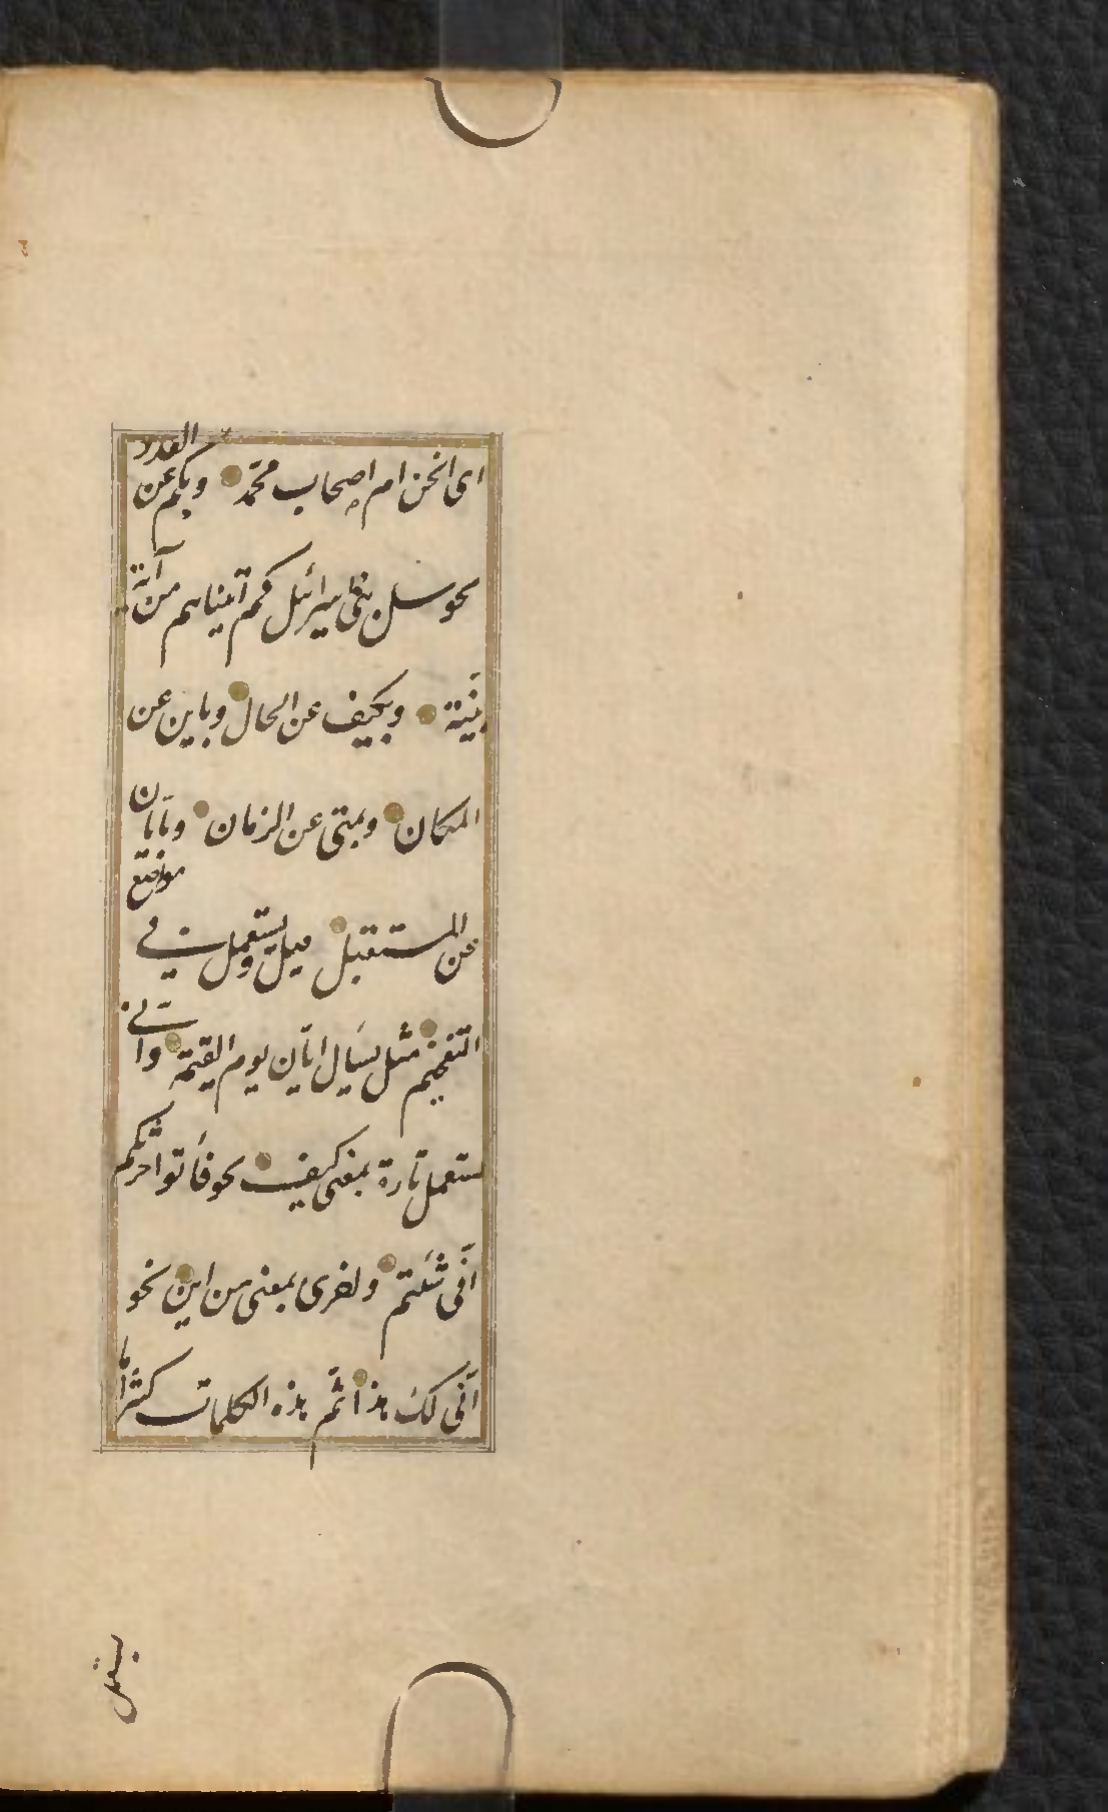 اى انحن ام اصحاب محمّد وبكم عن العدد
نحو سل بنى اسرائيل كم آتيناهم من آية
بيّنة وبكيف عن الحال وباين عن
المكان وبمتى عن الزمان وبأيّان
عن المستقبل قيل ويستعمل فى مواضع
التفخيم مثل يسأل ايّان يوم القيمة وانّى
يستعمل تارة بمعنى كيف نحو فأتوا حرثكم
انّى شئتم واخرى بمعنى من اين نحو
انّى لك هذا ثمّ هذه الكلمات كثيرا ما
تستعمل